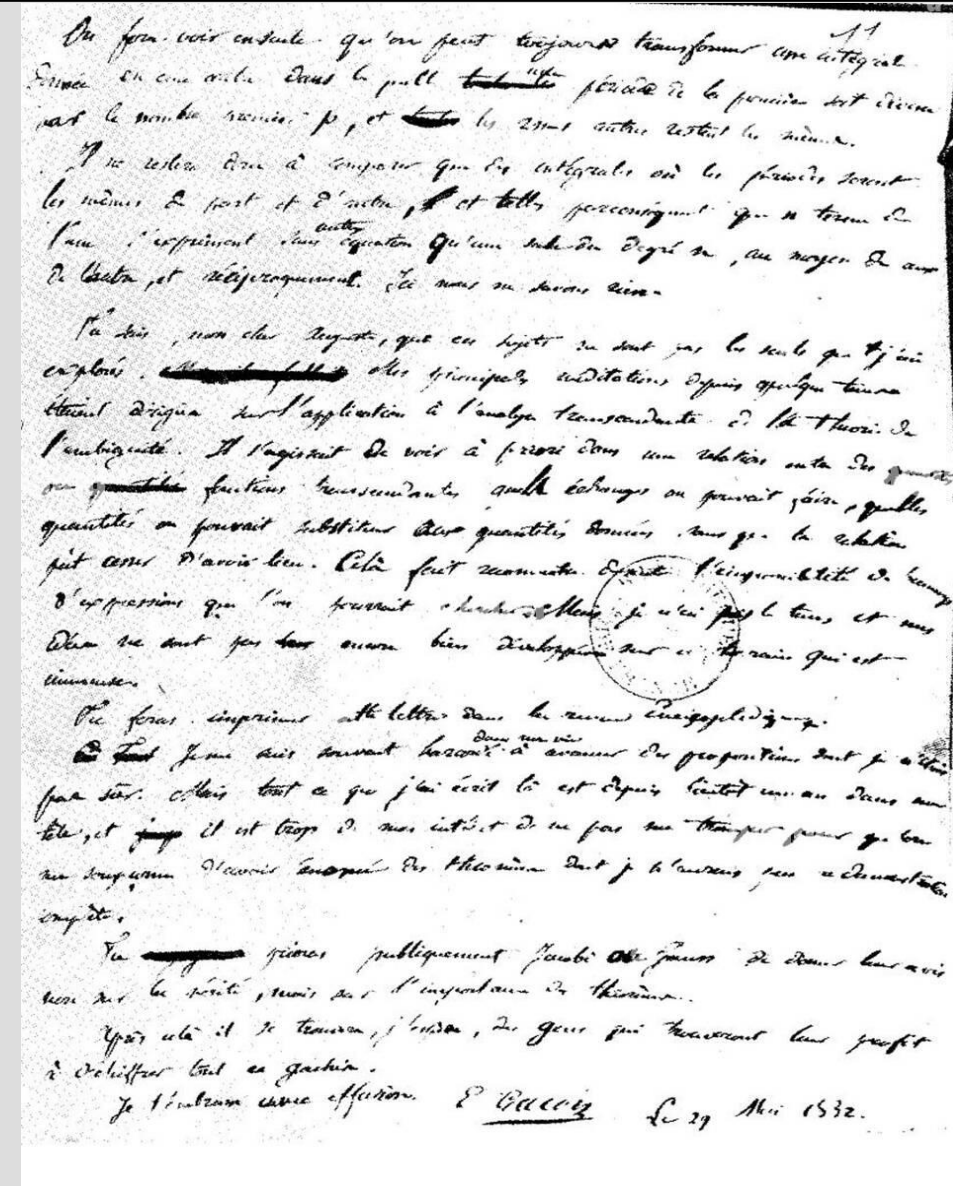 11
On fera voir ensuite qu'on peut toujours transformer une intégrale
donnée en une autre dans laquelle une période de la première soit divisée
par le nombre premier p, et les 2n-1 autres restent les mêmes.
Il ne restera donc à comparer que des intégrales où les périodes seront
les mêmes de part et d'autre, et telles parconséquent que n termes de
l'une s'expriment sans autre équation qu'une seule du degré n, au moyen de ceux
de l'autre, et réciproquement. Ici nous ne savons rien.
Tu sais, mon cher Auguste, que ces sujets ne sont pas les seuls que j'aie
explorés. Mes principales méditations depuis quelque tems
étaient dirigées sur l'application à l'analyse transcendante de la théorie de
l'ambiguité. Il s'agissait de voir à priori dans une relation entre des quantités
ou fonctions transcendantes quels échanges on pouvait faire, quelles
quantités on pouvait substituer aux quantités données sans que la relation
pût cesser d'avoir lieu. Celà fait reconnaitre l'impossibilité de beaucoup
d'expressions que l'on pourrait chercher. Mais je n'ai pas le tems et mes
idées ne sont pas encore bien développées sur ce terrain qui est
immense.
Tu feras imprimer cette lettre dans la revue encyclopédique.
Je me suis souvent hazardé dans ma vie à avancer des propositions dont je n'étais
pas sûr. Mais tout ce que j'ai écrit là est depuis bientôt un an dans ma
tête, et il est trop de mon intérêt de ne pas me tromper pour qu'on
me soupçonne d'avoir énoncé des théorèmes dont je n'aurais pas la démonstration
complète.
Tu prieras publiquement Jacobi ou Gauss de donner leur avis
non sur la vérité, mais sur l'importance des théorèmes.
Après celà il se trouvera, j'espère, des gens qui trouveront leur profit
à déchiffrer tout ce gachis.
Je t'embrasse avec effusion. E Galois Le 29 Mai 1832.